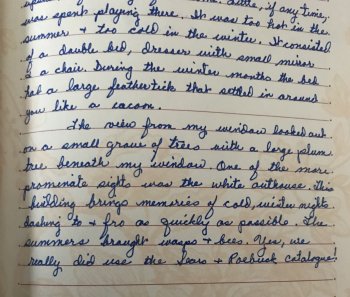 time,
was spent playing there. It was too hot in the
summer + too cold in the winter. It consisted
of a double bed, dresser with small mirror
& a chair. During the winter months the bed
had a large feathertick that settled in around
you like a cacoon.
The view from my window looked out
on a small grove of trees with a large plum
tree beneath my window. One of the more
prominate sights was the white outhouse. This
building brings memories of cold, winter nights
dashing to + fro as quickly as possible. The
summers brought wasps + bees. Yes, we
really did use the Sears + Roebuck catalogue!